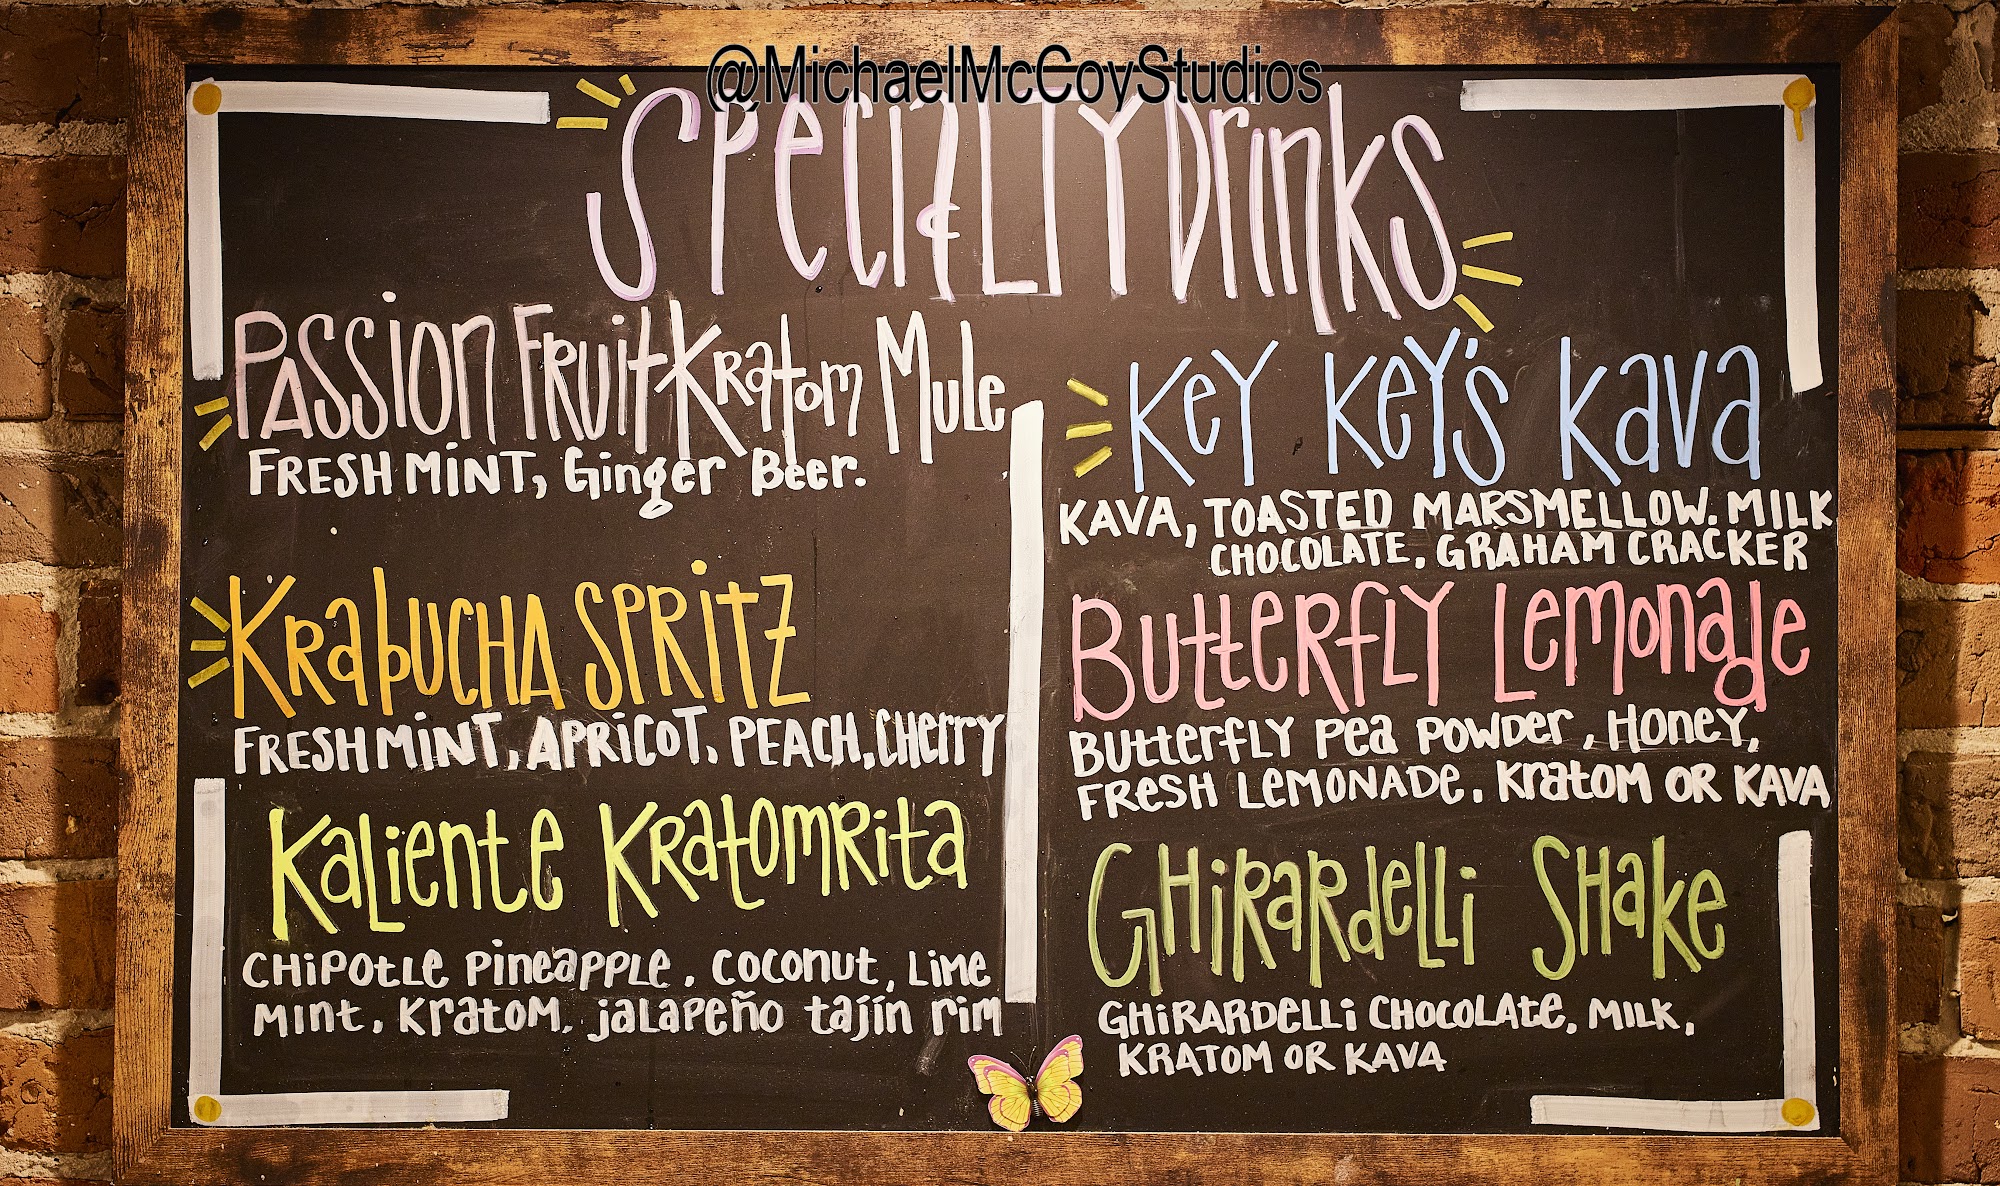 @MichaelMcCoyStudios
SPECIALTY Drinks
PASSION FRUIT Kratom Mule
FRESH MINT, Ginger Beer.
Krabucha Spritz
FRESH MINT, APRICOT, PEACH, CHerry
Kaliente Kratomrita
CHIPOTLE PINEAPPLE, COCONUT, LIME
MINT, KRATOM, JALAPEÑO TAJÍN RIM
Key Key's Kava
KAVA, TOASTED MARSMELLOW. MILK
CHOCOLATE, GRAHAM CRACKER
Butterfly Lemonade
Butterfly Pea Powder, Honey,
FRESH LEMONADE, Kratom OR KAVA
Ghirardelli Shake
GHIRARDELLI CHOCOLATE, MILK,
KRATOM OR KAVA